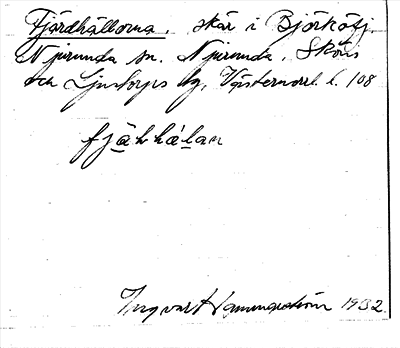 Fjärdhällorna, skär i Björkötj.
Njurunda sn. Njurunda, Sköns
och Ljustorps tg, Västernorrl. l. 108
fjähhálan
Ingvar Hammarström 1932.